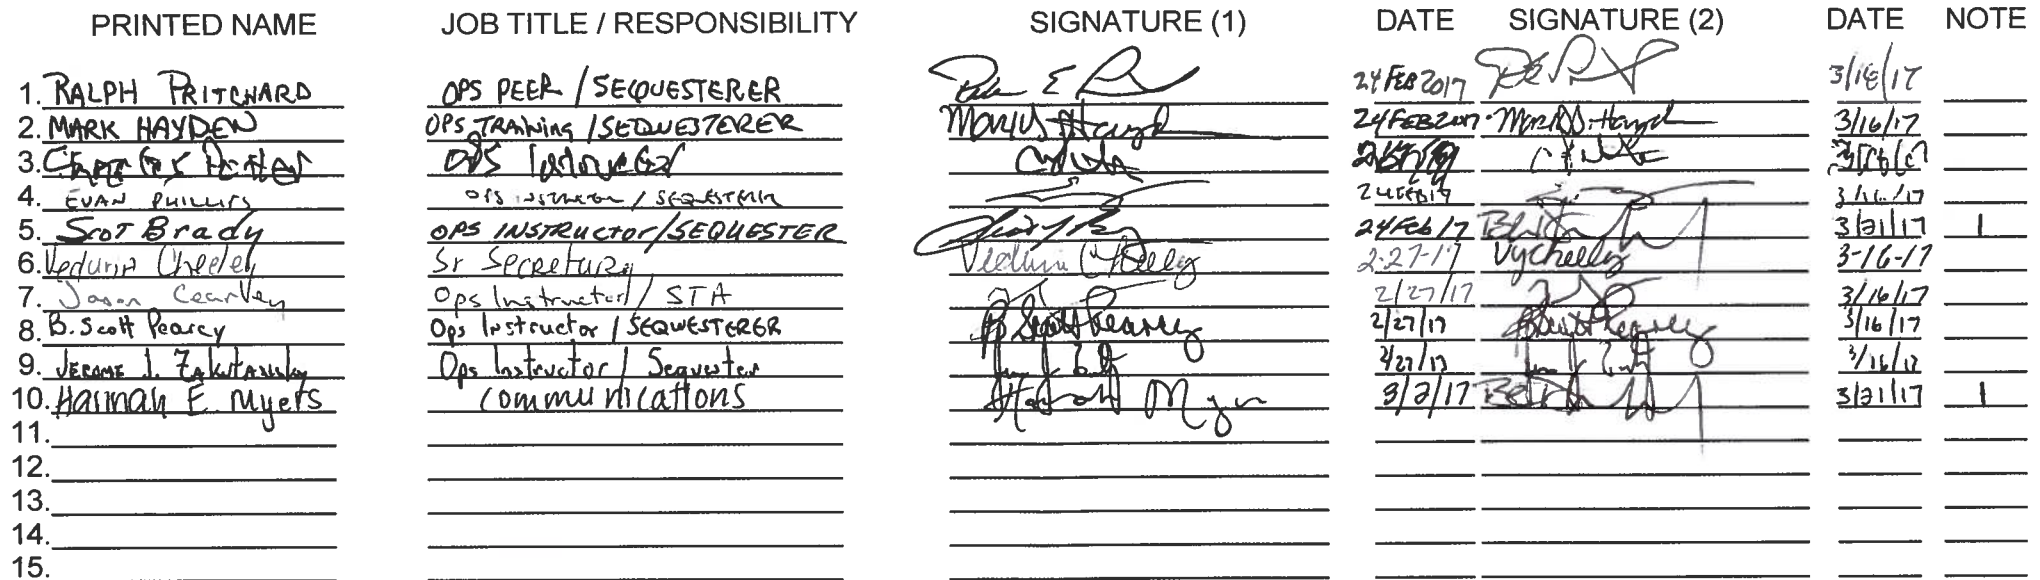 PRINTED NAME JOB TITLE / RESPONSIBILITY SIGNATURE (1) DATE SIGNATURE (2) DATE NOTE
1. RALPH PRITCHARD OPS PEER / SEQUESTERER 24 FEB 2017 3/16/17
2. MARK HAYDEN OPS TRAINING / SEQUESTERER Mark Hayden 24FEB2017 Mark Hayden 3/16/17
3. OPS
4. EVAN PHILLIPS OPS INSTRUCTOR / 24FEB17 3/16/17
5. Scot Brady OPS INSTRUCTOR/SEQUESTER 24Feb17 3/21/17 1
6. Cheeley Sr Secretary 2-27-17 VyCheely 3-16-17
7. Jason Ops Instructor / STA 2/27/17 3/16/17
8. B. Scott Pearcy Ops Instructor / SEQWESTERER B Scott Pearcy 2/27/17 B Scott Pearcy 3/16/17
9. JEROME J. Ops Instructor / Sequester 2/27/17 3/16/17
10. Hannah E Myers communications Hannah Myers 3/2/17 3/21/17 1
11.
12.
13.
14.
15.